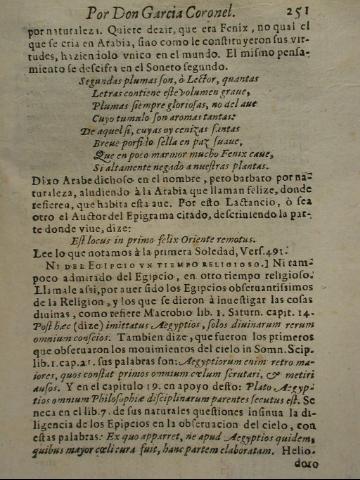 Por Don Garcia Coronel. 251
por naturaleza. Quiere dezir, que era Fenix, no qual el
que se cria en Arabia, sino como le constituyeron sus vir-
tudes, haziendolo vnico en el mundo. El mismo pensa-
miento se descifra en el Soneto segundo.
Segundas plumas son, ò Lector, quantas
Letras contiene este volumen graue,
Plumas siempre gloriosas, no del aue
Cuyo tumulo son aromas tantas:
De aquel sí, cuyas oy cenizas santas
Breue porfido sella en paz suaue,
Que en poco marmor mucho Fenix caue,
Si altamente negado a nuestras plantas.
Dixo Arabe dichoso en el nombre, pero barbaro por na-
turaleza, aludiendo à la Arabia que llaman felize, donde
refieren, que habita esta auc. Por esto Lactancio, ò sea
otro el Auctor del Epigrama citado, descriuiendo la par-
te donde viue, dize:
Est locus in primo felix Oriente remotus.
Lee lo que notamos à la primera Soledad, Vers. 491.
NI DEL EGIPCIO VN TIEMPO RELIGIOSO.] Ni tam-
poco admirado del Egipcio, en otro tiempo religioso.
Llamale assi, por auer sido los Egipcios obseruantissimos
de la Religion, y los que se dieron à inuestigar las cosas
diuinas, como refiere Macrobio lib. 1. Saturn. capit. 14.
Post hæc (dize) imittatus Ægyptios, solos diuinarum rerum
omnium conscios. Tambien dize, que fueron los primeros
que obseruaron los mouimientos del cielo in Somn. Scip.
lib. 1. cap. 21. sus palabras son: Aegyptiorum enim retro ma-
iores, quos constat primos omnium cœlum scrutari, & metiri
ausos. Y en el capitulo 19. en apoyo desto: Plato Aegyp-
tios omnium Philosophiæ disciplinarum parentes secutus est. Se
neca en el lib. 7. de sus naturales questiones insinua la di-
ligencia de los Egipcios en la obseruacion del cielo, con
estas palabras: Ex quo apparret, ne apud Aegyptios quidem,
quibus mayor cœli cura fuit, hanc partem elaboratam. Helio-
doro